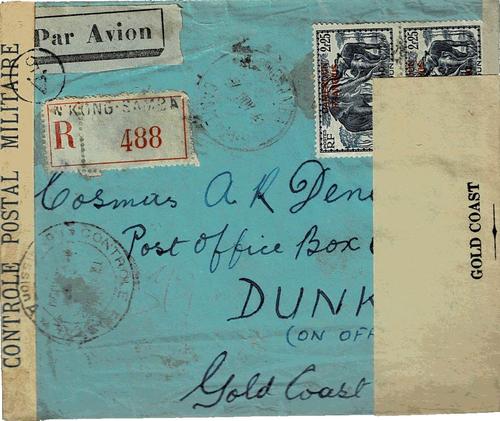 Par Avion
2f25
2f25
RF
N'KONG-SAMBA
R 488
CONTROLE POSTAL MILITAIRE
Cosmas A K Den
Post office Box
DUNK
(ON OFF
Gold Coast
CONTROLE
GOLD COAST